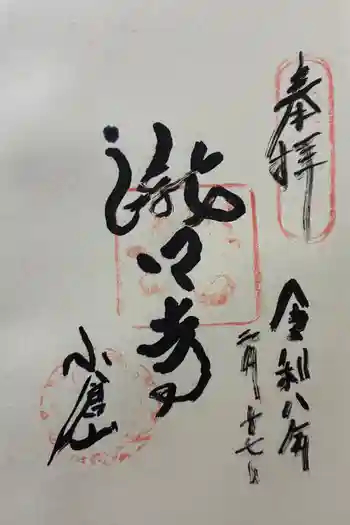 奉拝
令和八年
二月十七日
滝口寺
小倉山